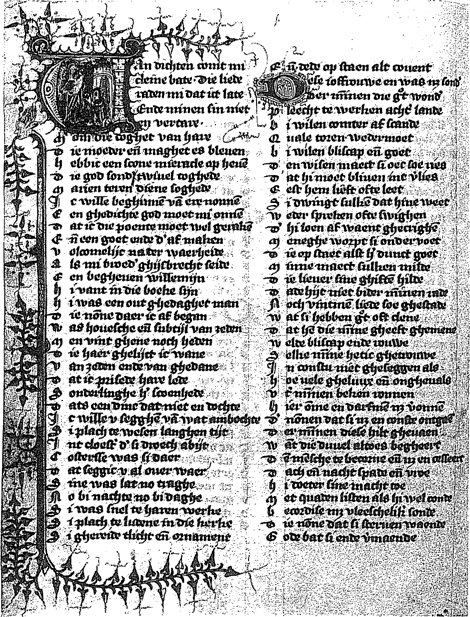 Van dichten comt mi
cleine bate die liede
raden mi dat ict late
Ende minen sin niet
en vertare.
om die doghet van hare
Die moeder eñ maghet es bleven
Hebbic een scone mieracle op heuē
Die god sond' twiuel toghede
Marien teren diene soghede
Ic wille beghinnē van ere nonnē
Een ghedichte god moet mi onnē
Dat ic die poente moet wel gerakē
Eñ een goet ende d' af maken
Volcomelijc na der waerheide
Als mi broed' ghijsbrecht seide
Een begheuen willemijn
Hi vant in die boeke sijn
Hi was een out ghedaghet man
Die nōne daer ic af began
Was houesche eñ subtijl van zeden
Men vint ghene noch heden
Die haer ghelijct ic wane
Van zeden ende van ghedane
Dat ic prisede hare lede
Sonderlinghe h' scoenhede
Dats een dinc dat niet en dochte
Ic wille v segghē vā wat ambochte
Si plach te wesen langhen tijt
Int cloest' d' si droech abijt
Costersse was si daer
Dat seggic v al ouer waer
Sine was lat no traghe
No bi nachte no bi daghe
Si was snel te haren werke
Si plach te ludene in die kerke
Si ghereide tlicht eñ ornament
Eñ dede op staen alt couent
Dese ioffrouwe en was nz sond'
Der mīnen die gt' wond'
Pleecht te werken acht' lande
Bi wilen comter af scande
Quale toren wedermoet
Bi wilen bliscap eñ goet
Den wisen maect si oec soe ries
Dat hi moet bliuen int v'lies
Eest hem lieft ofte leet
Si dwingt sulkē dat hine weet
Weder spreken ofte swighen
D' hi loen af waent ghecrighē
Meneghe worpt si onder voet
Die op staet alst h' dunct goet
Minne maect sulken milde
Die lieuer sine ghiftē hilde
Dade hijt niet bider minnen rade
Noch vintmē liede soe ghestade
Wat si hebben gt' oft clene
Dat hē die mīne gheeft ghemene
Welde bliscap ende rouwe
Selke mīne hetic ghetrouwe
In constu niet gheseggen als
Hoe vele gheluux eñ ongheuals
Vt' mīnen beken ronnen
Hier ōme en darfmē nz v'onnē
D' nōnen dat si nz en conste ontgaē
D' mīnen diese hilt gheuaen
Want die duuel altoes begheert
Dē mēsche te becorne eñ nz en cesseert
Dach eñ nacht spade eñ vroe
Hi doeter sine macht toe
Met quaden listen als hi wel conde
Becordise mz vleeschelik' sonde
Die nōne dat si steruen waende
Gode bat si ende v'maende